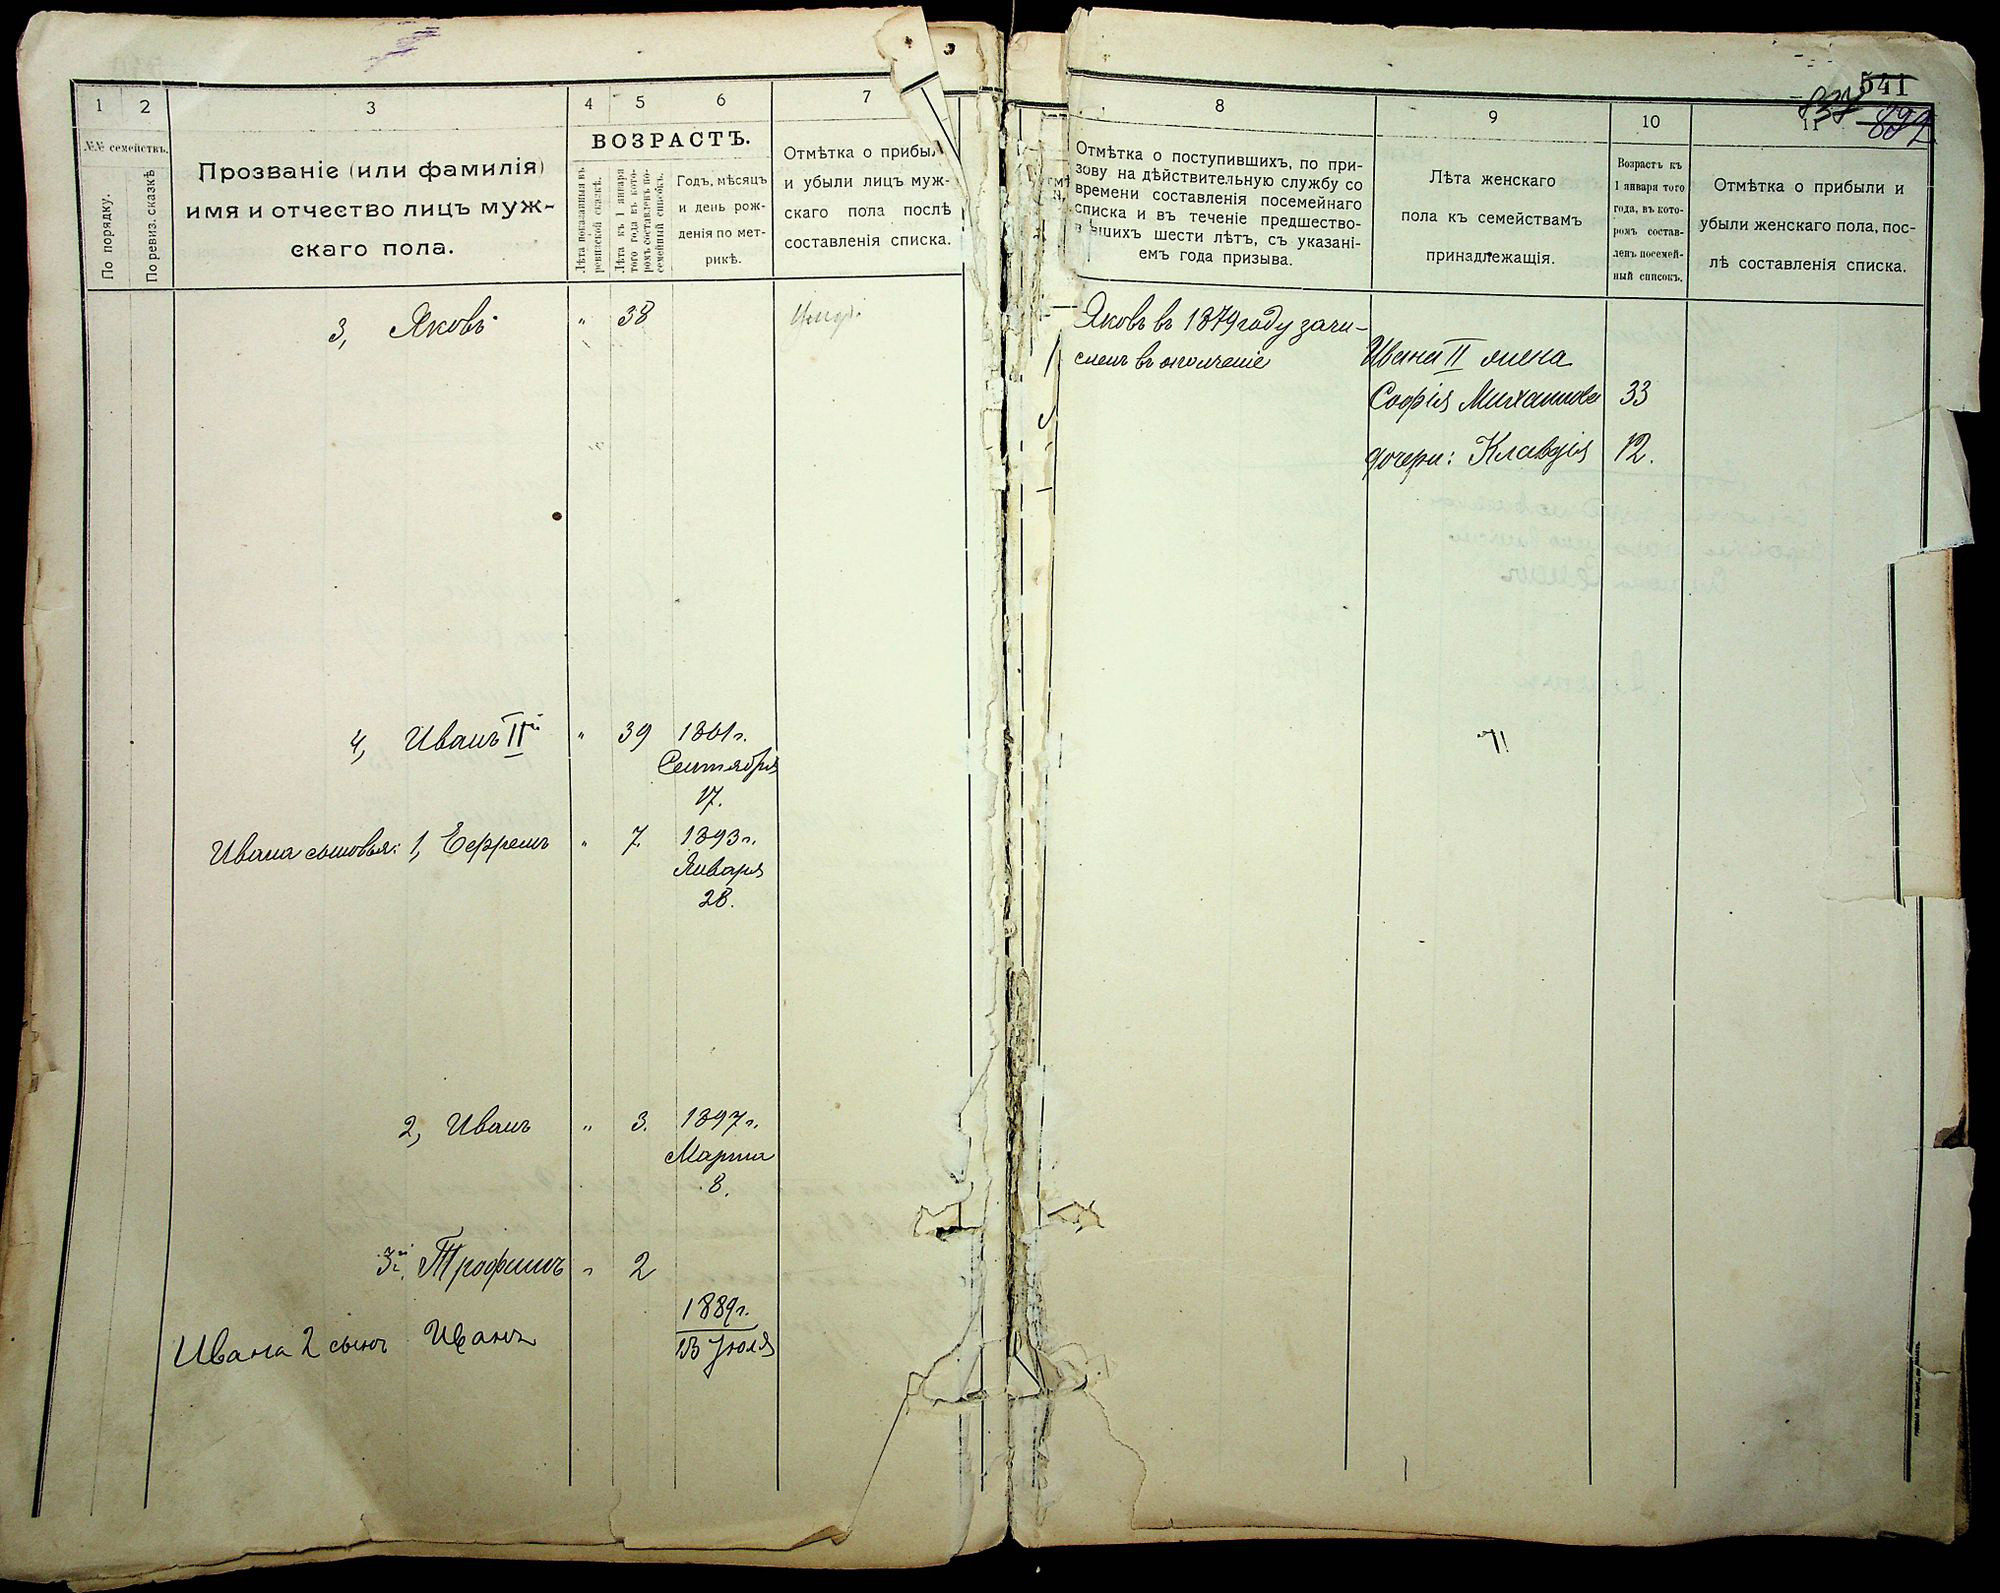 1
2
3
4
5
6
7
№№ семействъ.
По порядку.
По ревиз. сказкѣ
Прозваніе (или фамилія)
имя и отчество лицъ муж-
скаго пола.
ВОЗРАСТЪ.
Лѣта показанныя въ
ревизской сказкѣ.
Лѣта къ 1 января
того года въ кото-
ромъ составленъ по-
семейный списокъ.
Годъ, мѣсяцъ
и день рож-
денія по мет-
рикѣ.
Отмѣтка о прибыл
и убыли лицъ муж-
скаго пола послѣ
составленія списка.
3, Яковъ " 38
Умеръ.
4, Иванъ IIй " 39 1861 г.
Сентября
17.
Ивана сыновья: 1, Ефремъ " 7. 1893 г.
Января
28.
2, Иванъ " 3. 1897 г.
Марта
8.
3й, Трофимъ " 2
Ивана 2 сынъ Иванъ 1889 г.
15 Іюля
541
837
892
8
9
10
11
Отмѣтка о поступившихъ, по при-
зову на дѣйствительную службу со
времени составленія посемейнаго
списка и въ теченіе предшество-
вавшихъ шести лѣтъ, съ указані-
емъ года призыва.
Лѣта женскаго
пола къ семействамъ
принадлежащія.
Возрастъ къ
1 января того
года, въ кото-
ромъ состав-
ленъ посемей-
ный списокъ.
Отмѣтка о прибыли и
убыли женскаго пола, пос-
лѣ составленія списка.
Яковъ въ 1879 году зачи-
сленъ въ ополченіе
Ивана II жена
Софія Михаилова 33
дочери: Клавдія 12.